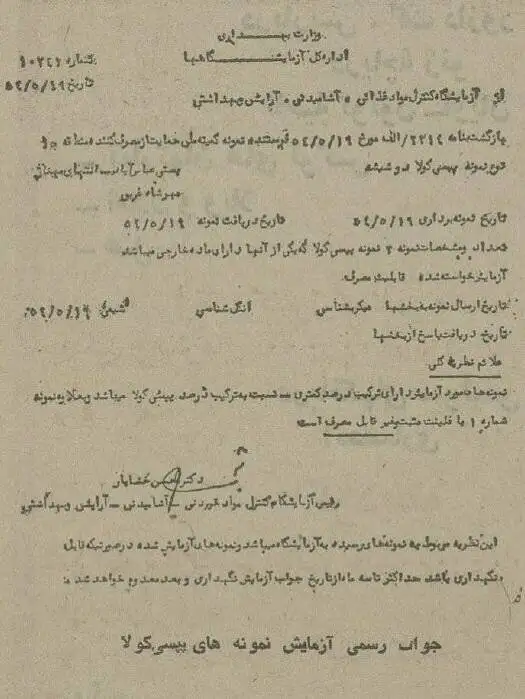 وزارت بهداری
اداره کل آزمایشگاهها
شماره ۱۰۲۲۱
تاریخ ۵۲/۵/۱۹
از آزمایشگاه کنترل مواد غذائی ـ آشامیدنی ـ آرایشی و بهداشتی
بازگشت بنامه ۲۲۱۴/الف مورخ ۵۲/۵/۱۹ فرستنده نمونه کمیته ملی حمایت از مصرف کننده
نوع نمونه پپسی کولا دو شیشه
مهرشاه غربی
تاریخ نمونه برداری ۵۲/۵/۱۹ تاریخ دریافت نمونه ۵۲/۵/۱۹
تعداد و مشخصات نمونه ۲ نمونه پپسی کولا که یکی از آنها دارای ماده خارجی میباشد
آزمایش خواسته شده قابلیت مصرف
تاریخ ارسال نمونه به بخشها میکربشناسی انگل شناسی شیمی ۵۲/۵/۱۴
تاریخ دریافت پاسخ از بخشها
علائم نظریه کلی
نمونه های مورد آزمایش دارای ترکیب درصد کمتری ـ نسبت به ترکیب درصد پپسی کولا میباشد و بعلاوه نمونه
شماره ۱ با فلینت مثبت و غیر قابل مصرف است
دکتر حسن خشایار
رئیس آزمایشگاه کنترل مواد خوردنی ـ آشامیدنی ـ آرایشی و بهداشتی
این نظریه مربوط به نمونه های رسیده به آزمایشگاه میباشد و نمونه های آزمایش شده در صورتیکه قابل
نگهداری باشد حداکثر تا سه ماه از تاریخ جواب آزمایش نگهداری و بعد معدوم خواهد شد
جواب رسمی آزمایش نمونه های پپسی کولا